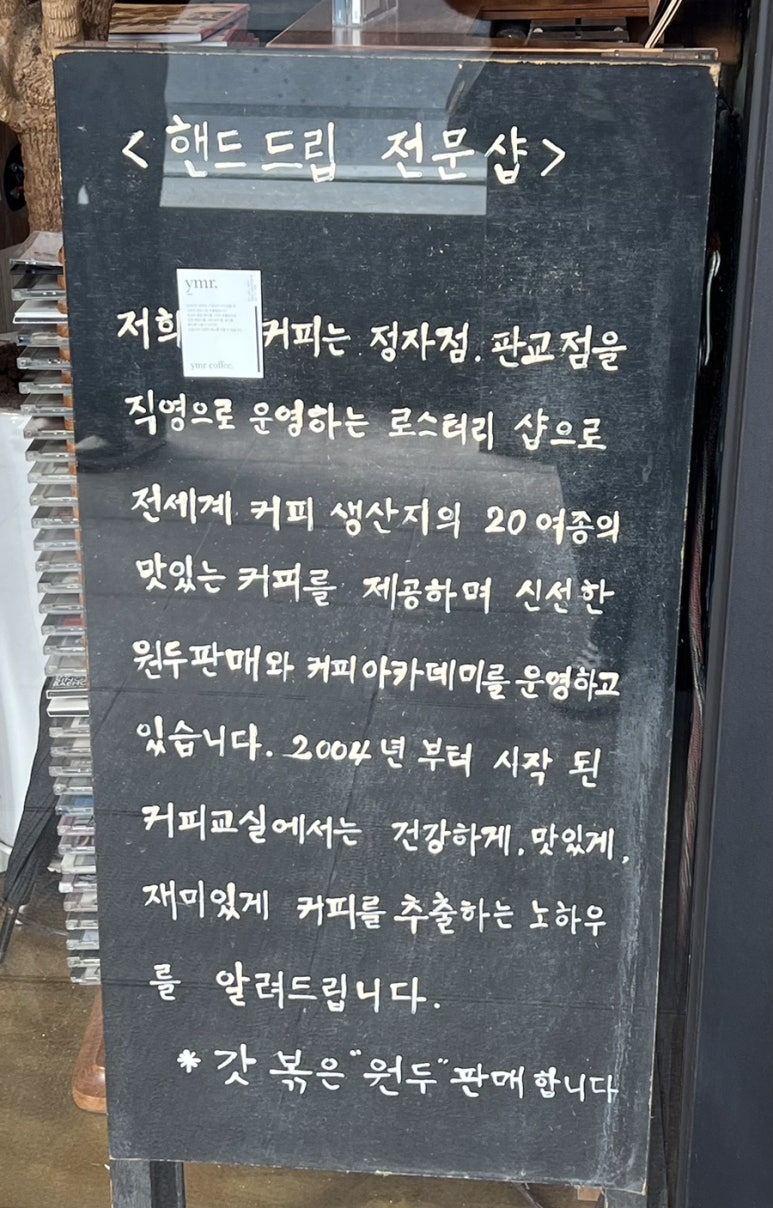 <핸드드립 전문샵>
ymr.
저희 커피는 정자점. 판교점을
ymr coffee.
직영으로 운영하는 로스터리 샵으로
전세계 커피 생산지의 20여종의
맛있는 커피를 제공하며 신선한
원두판매와 커피아카데미를 운영하고
있습니다. 2004년부터 시작 된
커피교실에서는 건강하게, 맛있게,
재미있게 커피를 추출하는 노하우
를 알려드립니다.
* 갓 볶은 "원두" 판매합니다